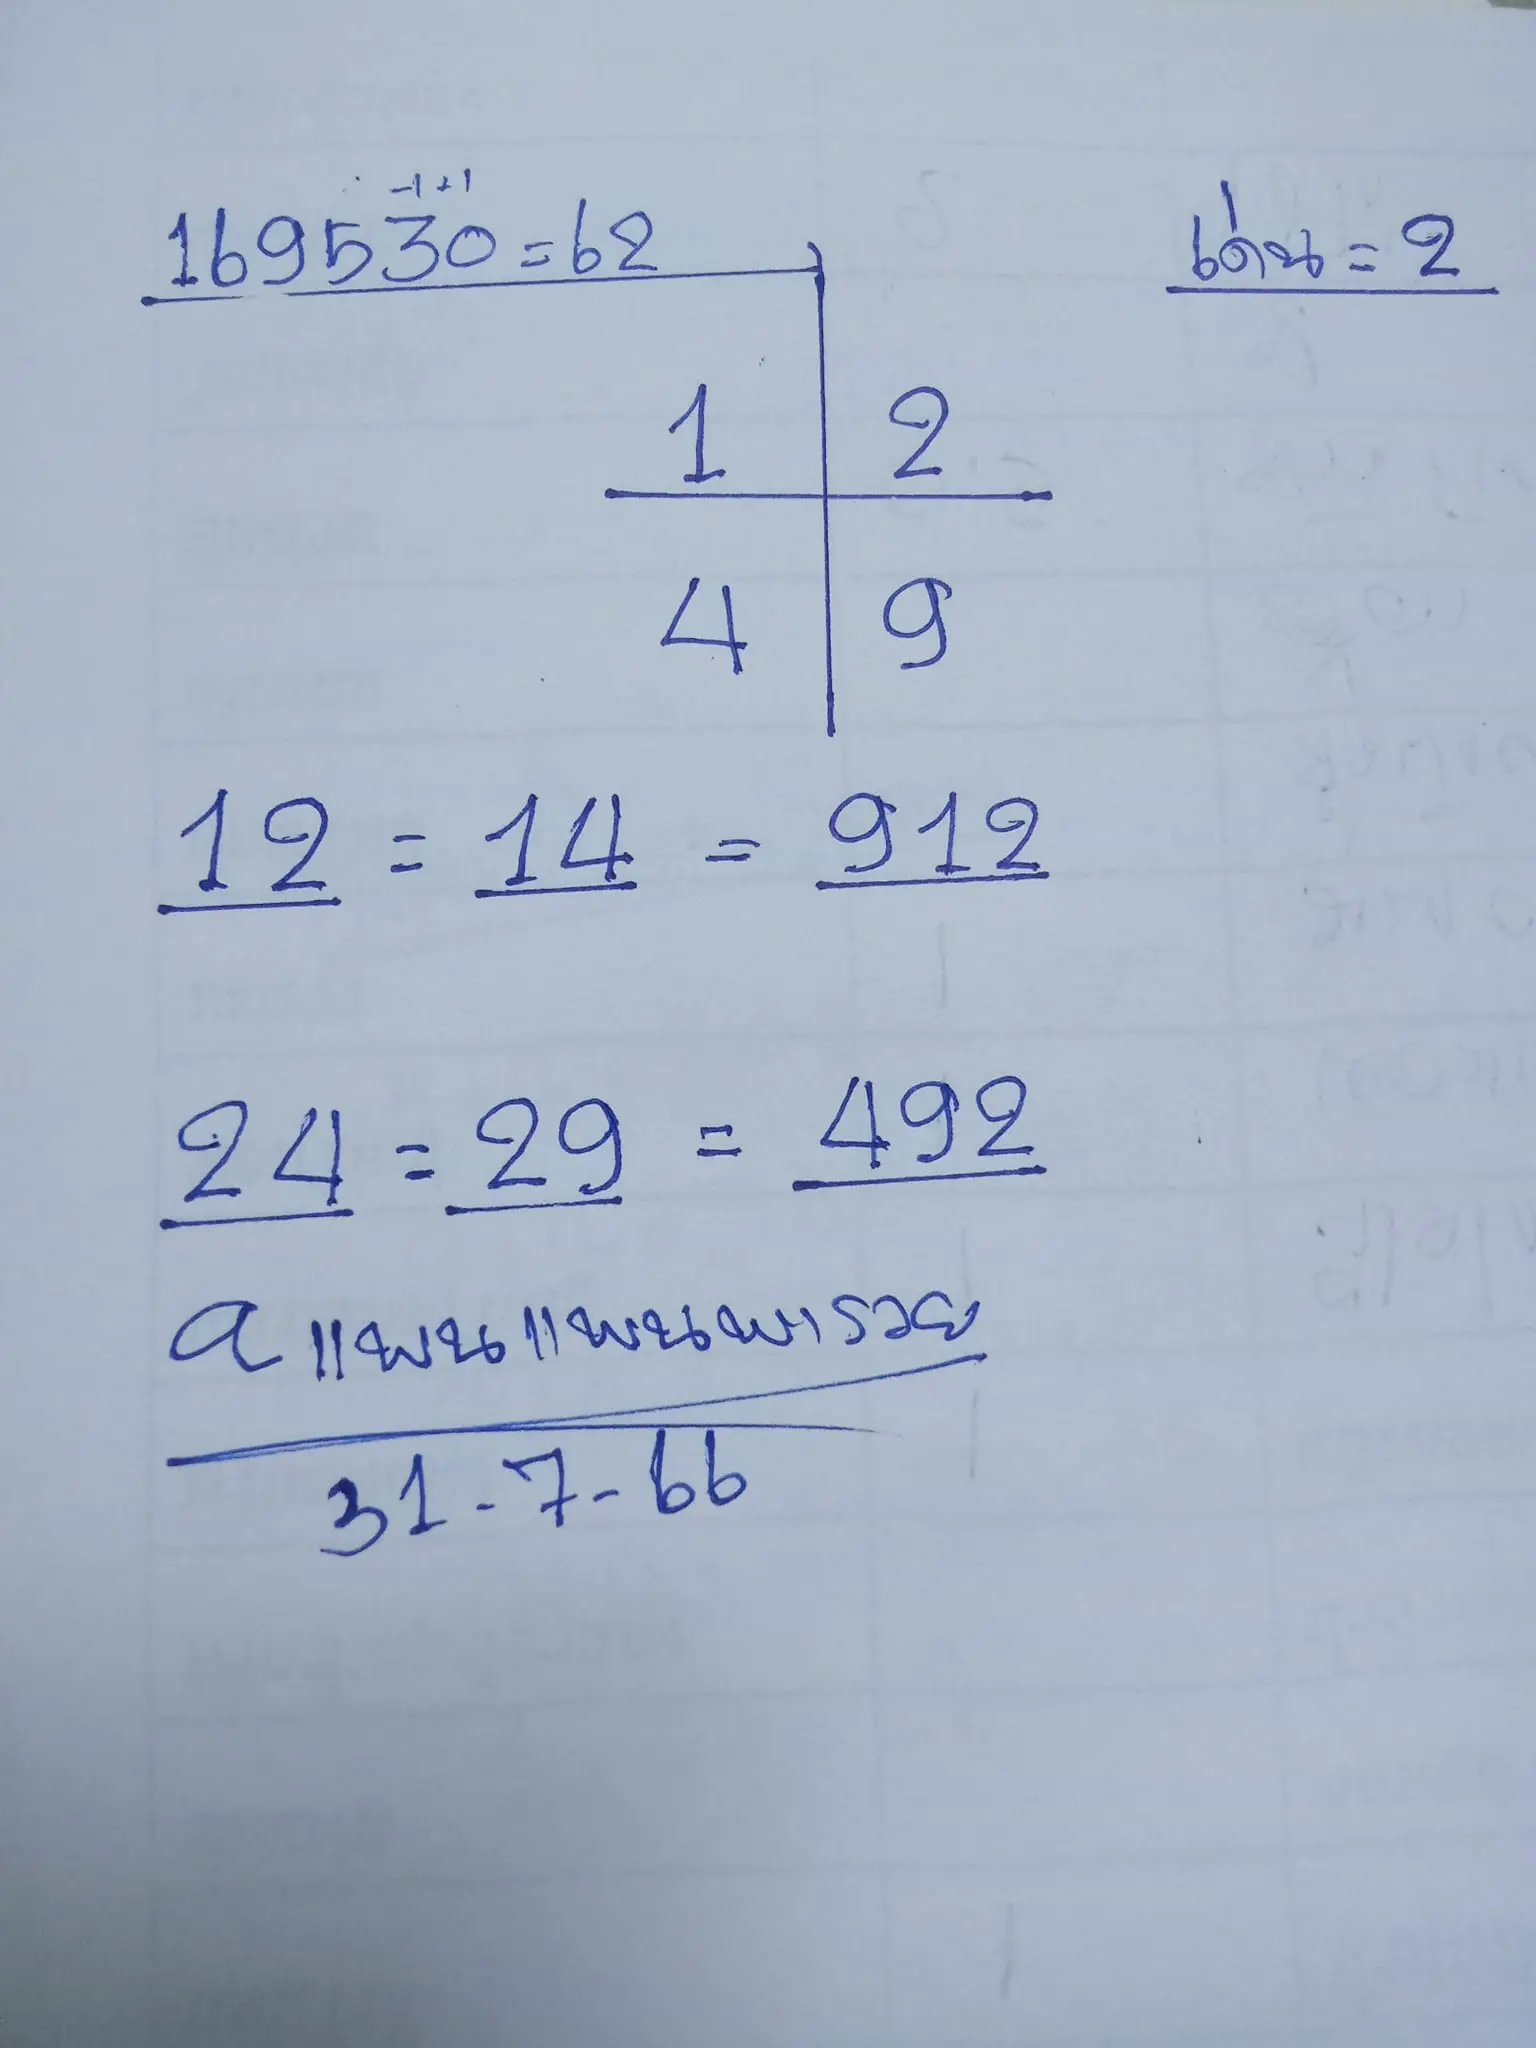 -1+1
169530=62
เด่น=2
1 2
4 9
12 = 14 = 912
24 = 29 = 492
a แพนแพนพารวย
31-7-66